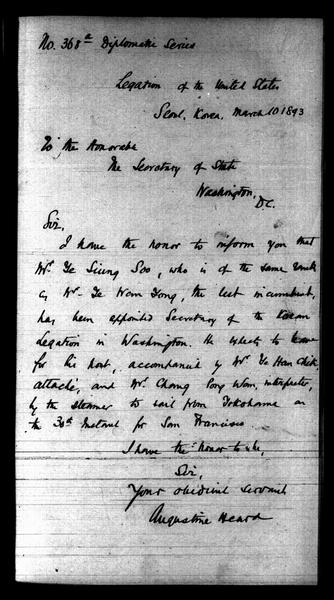 No. 368a Diplomatic Series
Legation of the United States
Seoul, Korea, March 10 1893
To the Honorable
The Secretary of State
Washington,
D.C.
Sir,
I have the honor to inform you that
Mr. Ye Siung Soo, who is of the same rank
as Mr. Ye Wan Yong, the last incumbent,
has been appointed Secretary of the Korean
Legation in Washington. He expects to leave
for his post, accompanied by Mr. Ye Han Chik,
attaché, and Mr. Chang Pong Wan, interpreter,
by the steamer to sail from Yokohama on
the 30th instant for San Francisco
I have the honor to be,
Sir,
Your obedient servant
Augustine Heard